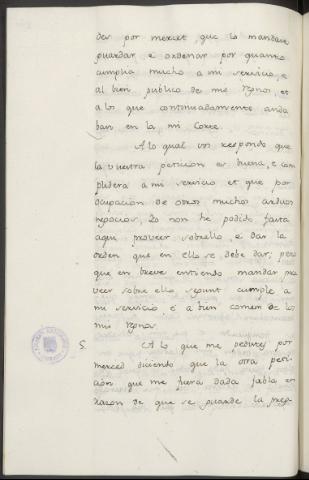 des por merçet, que lo mandase
guardar, e ordenar por quanto
cumplia mucho a mi servicio, e
al bien publico de mis regnos, et
a los que continuadamente anda
ban en la mi Corte.
A lo qual vos respondo que
la vuestra peticion es buena, e com
plidera a mi servicio et que por
ocupacion de otros muchos arduos
negocios, Io non he podido fasta
aqui proveer sobrello, e dar la
orden que en ello se debe dar; pero
que en breve entiendo mandar pro
veer sobre ello segunt cumple a
mi servicio, e a bien comun de los
mis regnos.
5. A lo que me pedistes por
merced diciendo que la otra peti-
cion que me fuera dada fabla en
razon de que se guarde la preg